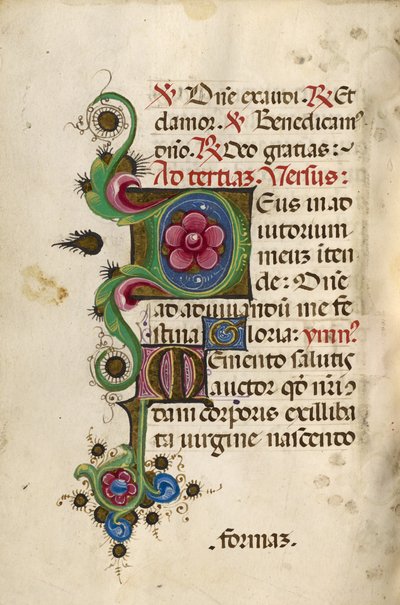 ℣ Dñe exaudi. ℟ Et
clamor. ℣ Benedicam⁹
dño. ℟ Deo gratias :~
Ad tertiaz. Versus:
Deus in ad
iutorium
meuz ĩten
de: Dñe
ad adiuvandũ me fe
stina Gloria: ymn⁹
Memento salutis
auctor qđ nr̃i ꝙ
dam corporis ex illiba
ta virgine nascendo
.formaz.